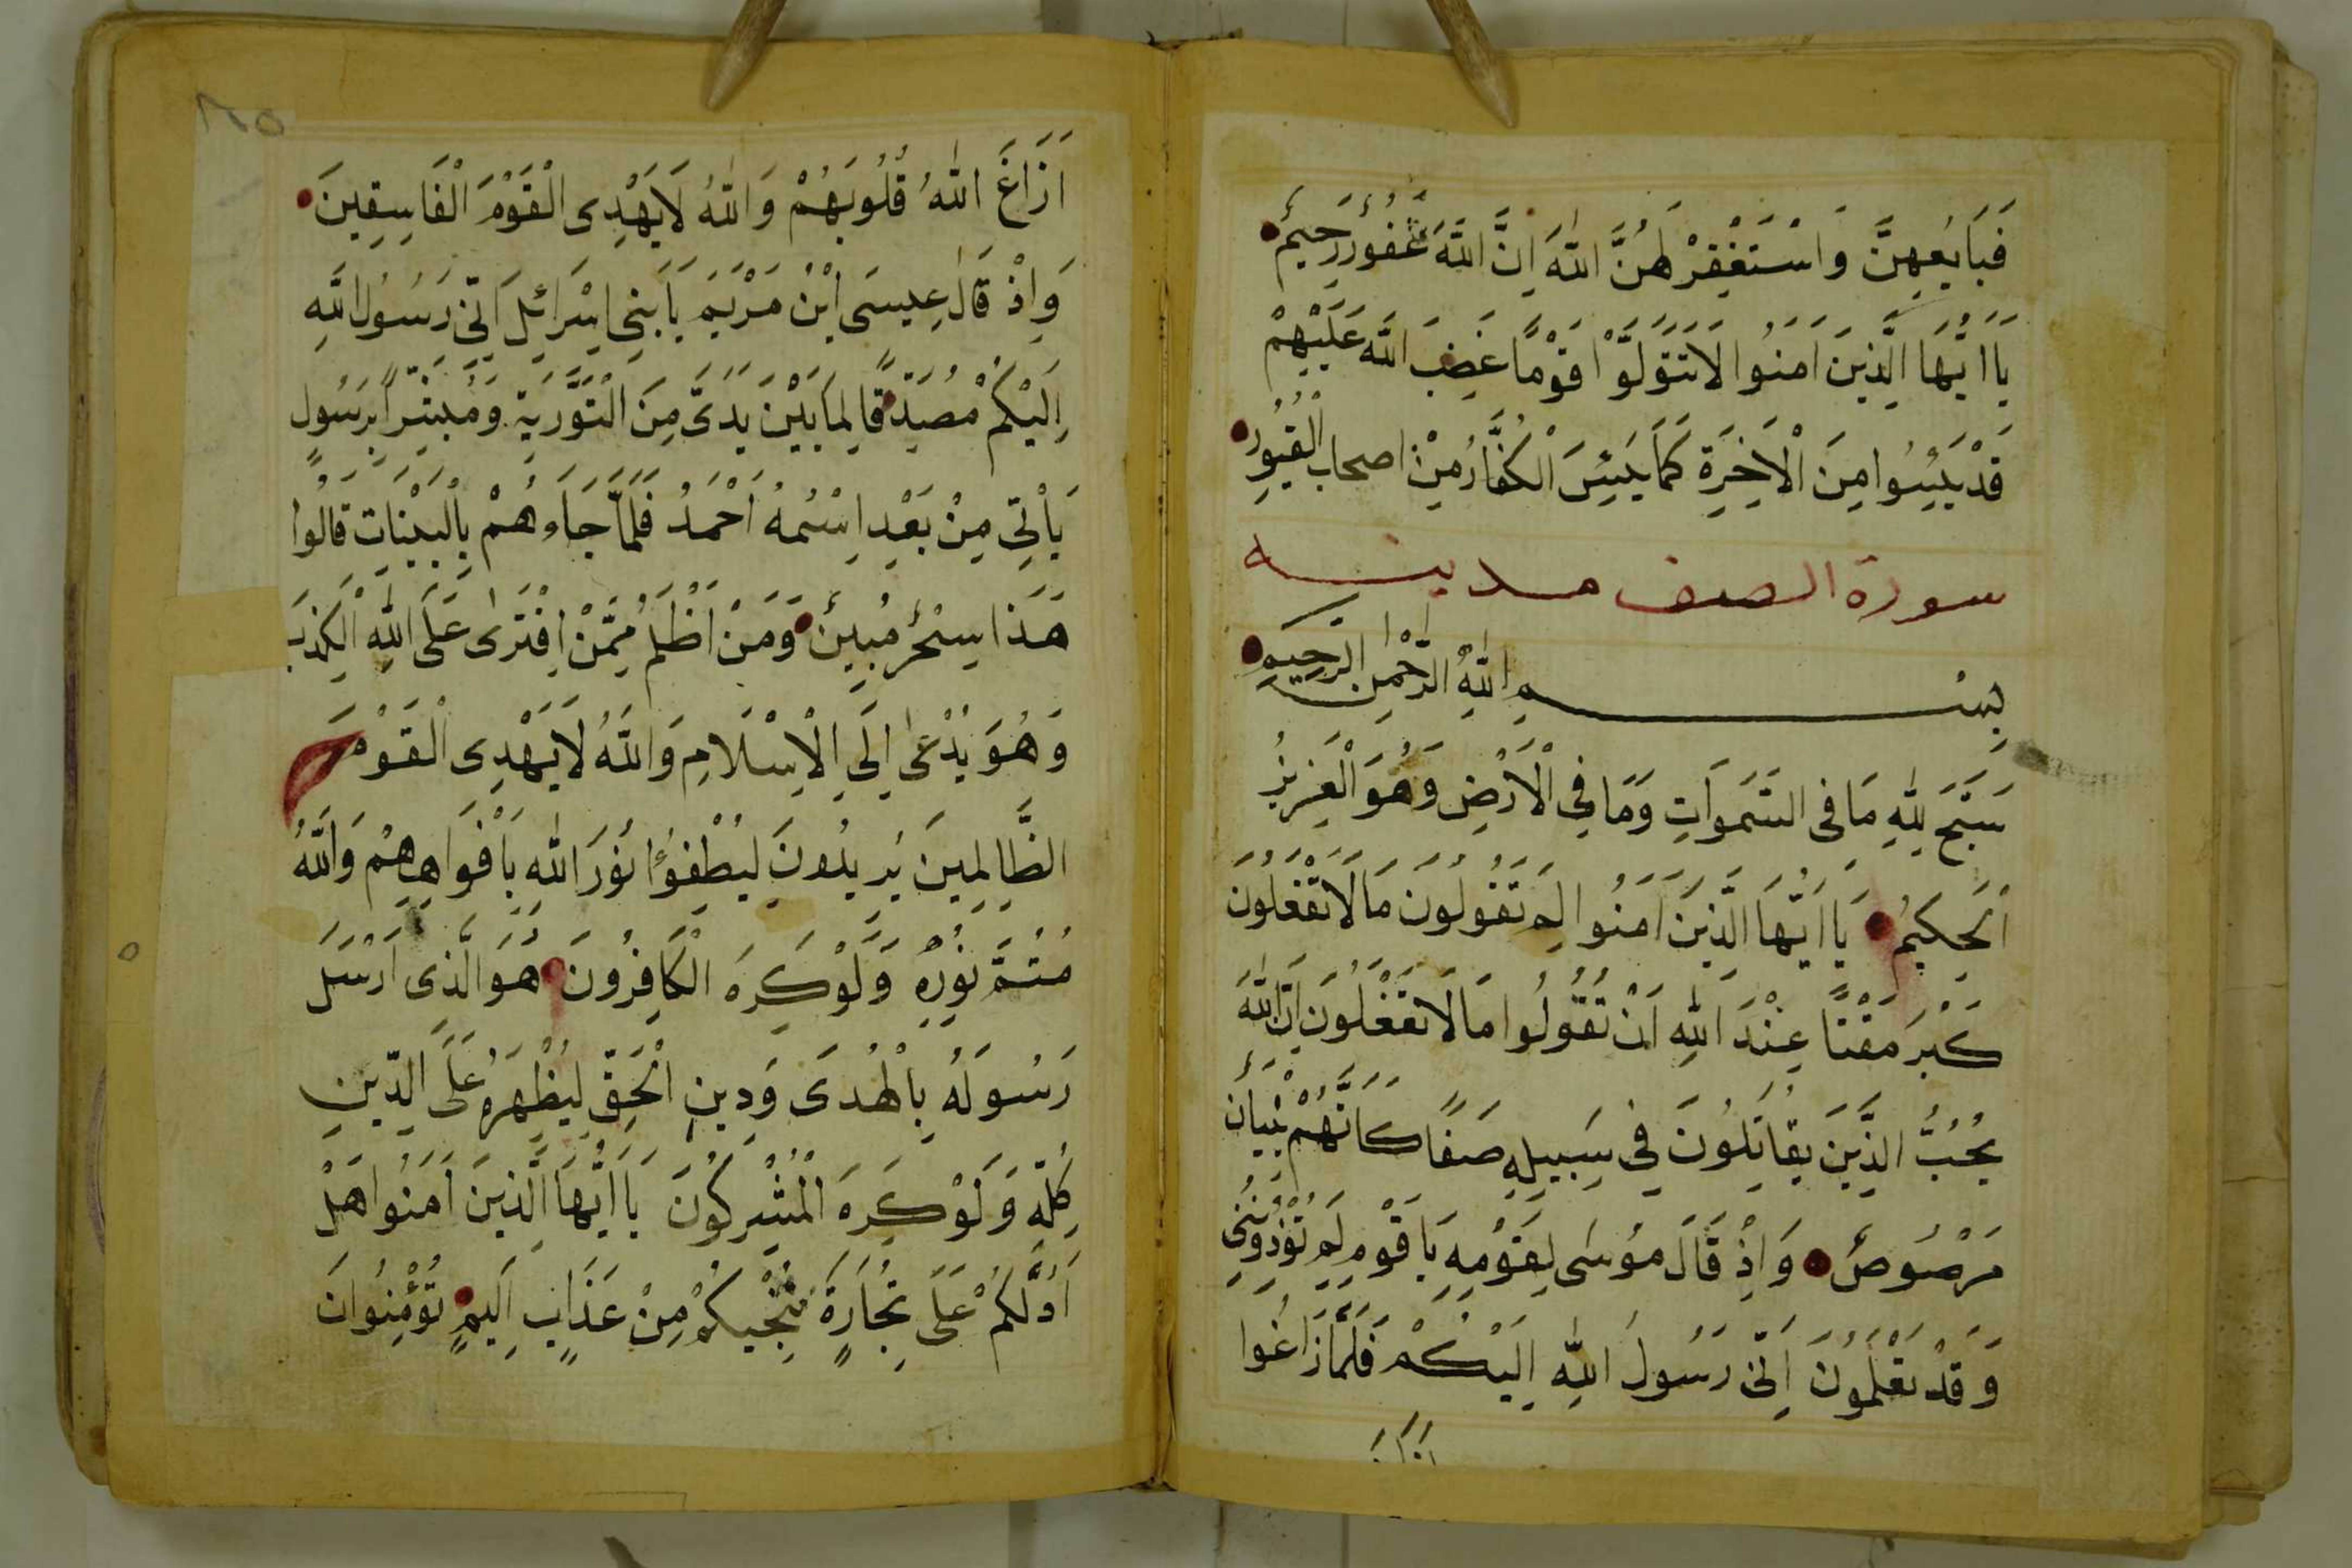 فَبَايِعْهِنَّ وَاسْتَغْفِرْ لَهُنَّ اللّٰهَ اِنَّ اللّٰهَ غَفُورٌ رَحِيمٌ
يَا اَيُّهَا الَّذِينَ اٰمَنُوا لَا تَتَوَلَّوْا قَوْمًا غَضِبَ اللّٰه عَلَيْهِمْ
قَدْ يَئِسُوا مِنَ الْاٰخِرَةِ كَمَا يَئِسَ الْكُفَّارُ مِنْ اصحاب الْقُبُورِ
سورة الصف مدينه
بِسْمِ اللّٰهِ الرَّحْمٰنِ الرَّحِيمِ
سَبَّحَ لِلّٰهِ مَا فِى السَّمَوَاتِ وَمَا فِى الْاَرْضِ وَهُوَ الْعَزِيزُ
الْحَكِيمُ يَا اَيُّهَا الَّذِينَ اٰمَنُوا لِمَ تَقُولُونَ مَا لَا تَفْعَلُونَ
كَبُرَ مَقْتًا عِنْدَ اللّٰهِ اَنْ تَقُولُوا مَا لَا تَفْعَلُونَ اِنَّ اللّٰهَ
يُحِبُّ الَّذِينَ يُقَاتِلُونَ فِى سَبِيلِهِ صَفًا كَاَنَّهُمْ بُنْيَانٌ
مَرْصُوصٌ وَاِذْ قَالَ مُوسَى لِقَوْمِهِ يَا قَوْمِ لِمَ تُؤْذُونَنِى
وَقَدْ تَعْلَمُونَ اَنِّى رَسُولُ اللّٰهِ اِلَيْكُمْ فَلَمَّا زَاغُوا
ازاغ
٨٥
اَزَاغَ اللّٰهُ قُلُوبَهُمْ وَاللّٰهُ لَا يَهْدِى الْقَوْمَ الْفَاسِقِينَ
وَاِذْ قَالَ عِيسَى ابْنُ مَرْيَمَ يَا بَنِى اِسْرَائِلَ اِنِّى رَسُولُ اللّٰهِ
اِلَيْكُمْ مُصَدِّقًا لِمَا بَيْنَ يَدَىَّ مِنَ التَّوْرَيةِ وَمُبَشِّرًا بِرَسُولٍ
يَأْتِى مِنْ بَعْدِ اسْمُهُ اَحْمَدُ فَلَمَّا جَاءَهُمْ بِالْبَيِّنَاتِ قَالُوا
هَذَا سِحْرٌ مُبِينٌ وَمَنْ اَظْلَمُ مِمَّنْ افْتَرٰى عَلَى اللّٰهِ الْكَذِبَ
وَهُوَ يُدْعٰى اِلَى الْاِسْلَامِ وَاللّٰهُ لَا يَهْدِى الْقَوْمَ
الظَّالِمِينَ يُرِيدُونَ لِيُطْفِؤُا نُورَ اللّٰهِ بِاَفْوَاهِهِمْ وَاللّٰهُ
مُتِمُّ نُورِهِ وَلَوْ كَرِهَ الْكَافِرُونَ هُوَ الَّذِى اَرْسَلَ
رَسُولَهُ بِالْهُدَى وَدِينِ الْحَقِّ لِيُظْهِرَهُ عَلَى الدِّينِ
كُلِّهِ وَلَوْ كَرِهَ الْمُشْرِكُونَ يَا اَيُّهَا الَّذِينَ اٰمَنُوا هَلْ
اَدُلُّكُمْ عَلَى تِجَارَةٍ تُنْجِيكُمْ مِنْ عَذَابٍ اَلِيمٍ تُؤْمِنُوانَ